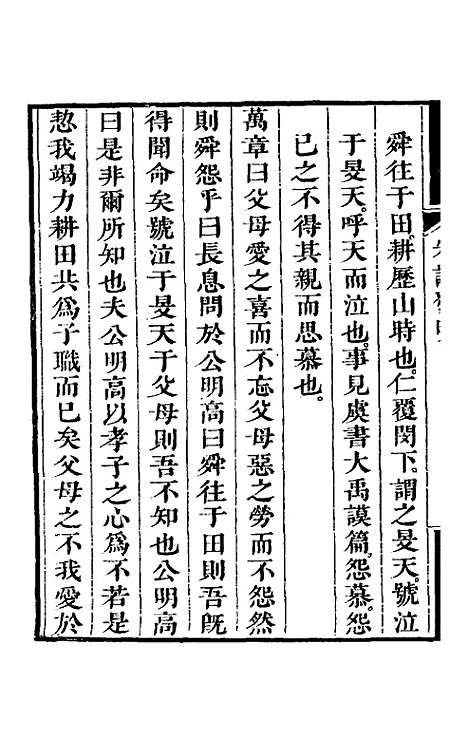 舜往于田。耕歷山時也。仁覆閔下。謂之旻天。號泣
于旻天。呼天而泣也。事見虞書大禹謨篇。怨慕。怨
己之不得其親而思慕也。
萬章曰父母愛之喜而不忘父母惡之勞而不怨然
則舜怨乎曰長息問於公明高曰舜往于田則吾旣
得聞命矣號泣于旻天于父母則吾不知也公明高
曰是非爾所知也夫公明高以孝子之心爲不若是
恝我竭力耕田共爲子職而已矣父母之不我愛於